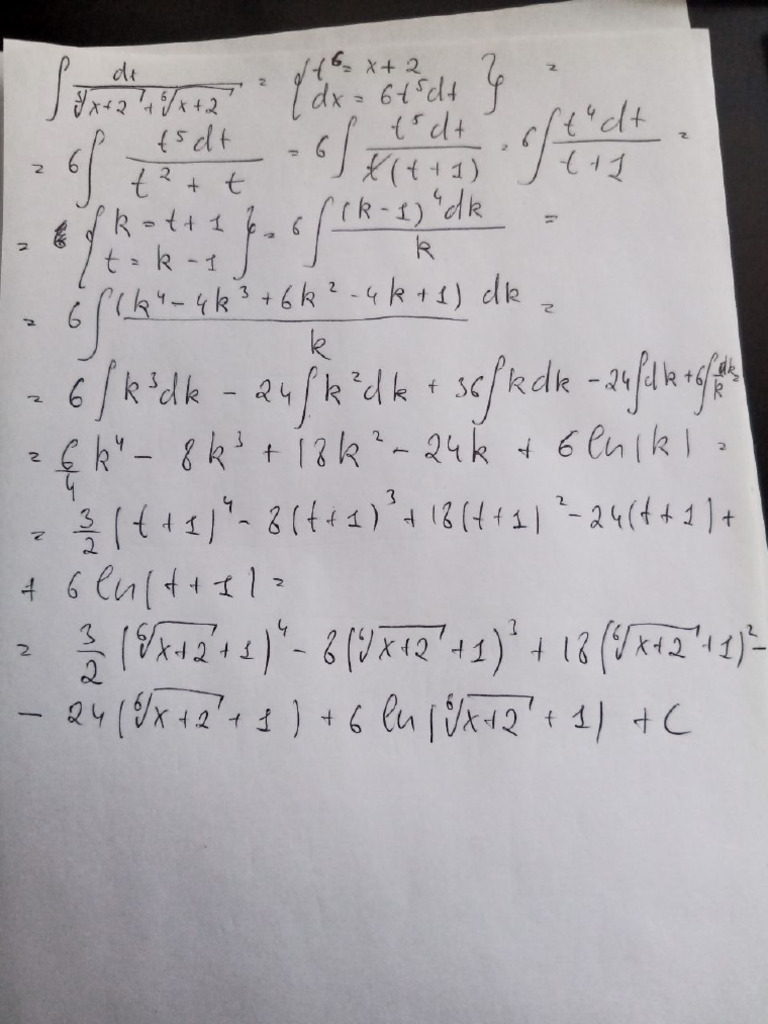 ∫ dt / (∛x+2 + ⁶√x+2) = { t⁶ = x+2 dx = 6t⁵dt } =
= 6∫ t⁵dt / (t² + t) = 6∫ t⁵dt / t(t+1) = 6∫ t⁴dt / (t+1) =
= { k = t+1 t = k-1 } = 6∫ (k-1)⁴dk / k =
= 6∫ (k⁴ - 4k³ + 6k² - 4k + 1) / k dk =
= 6∫k³dk - 24∫k²dk + 36∫kdk - 24∫dk + 6∫dk/k =
= 6/4 k⁴ - 8k³ + 18k² - 24k + 6 ln|k| =
= 3/2 (t+1)⁴ - 8(t+1)³ + 18(t+1)² - 24(t+1) +
+ 6 ln|t+1| =
= 3/2 (⁶√x+2 + 1)⁴ - 8(⁶√x+2 + 1)³ + 18(⁶√x+2 + 1)² -
- 24(⁶√x+2 + 1) + 6 ln|⁶√x+2 + 1| + C